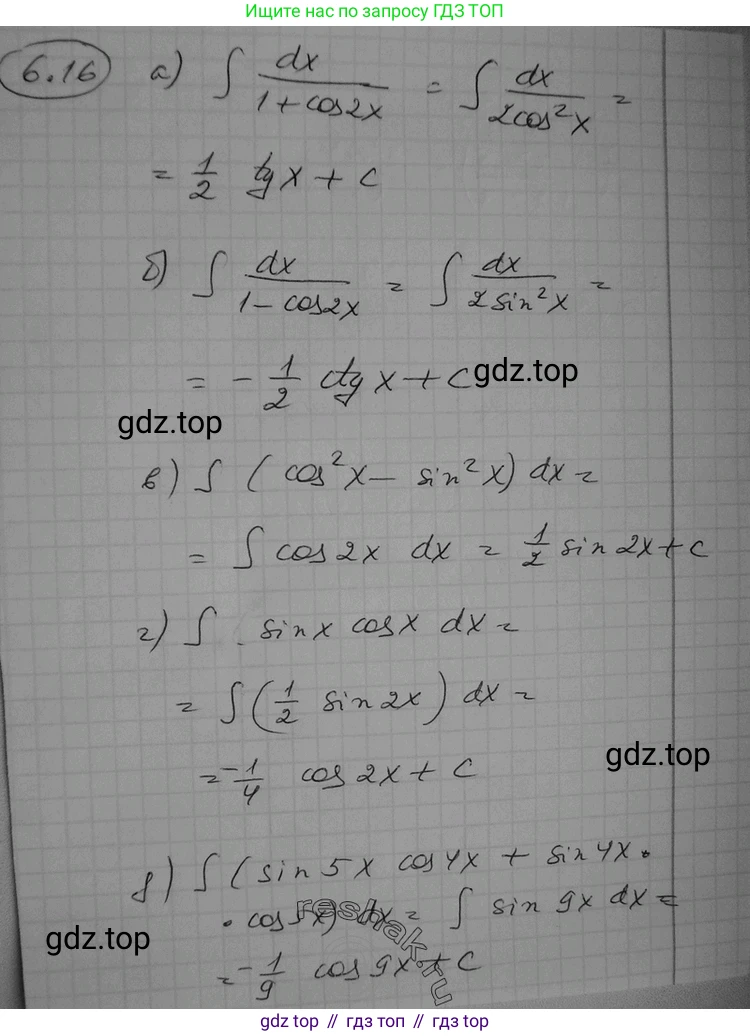 Ищите нас по запросу ГДЗ ТОП
6.16 а) ∫ dx/(1+cos2x) = ∫ dx/(2cos²x) =
= 1/2 tgx + c
б) ∫ dx/(1-cos2x) = ∫ dx/(2sin²x) =
= - 1/2 ctgx + c
gdz.top
gdz.top
в) ∫ (cos²x - sin²x) dx =
= ∫ cos2x dx = 1/2 sin2x + c
г) ∫ sinx cosx dx =
= ∫ (1/2 sin2x) dx =
gdz.top
= -1/4 cos2x + c
д) ∫ (sin5x cos4x + sin4x •
• cos5x) dx = ∫ sin9x dx =
reshak.ru
gdz.top
= -1/9 cos9x + c
gdz.top // гдз топ // гдз.top